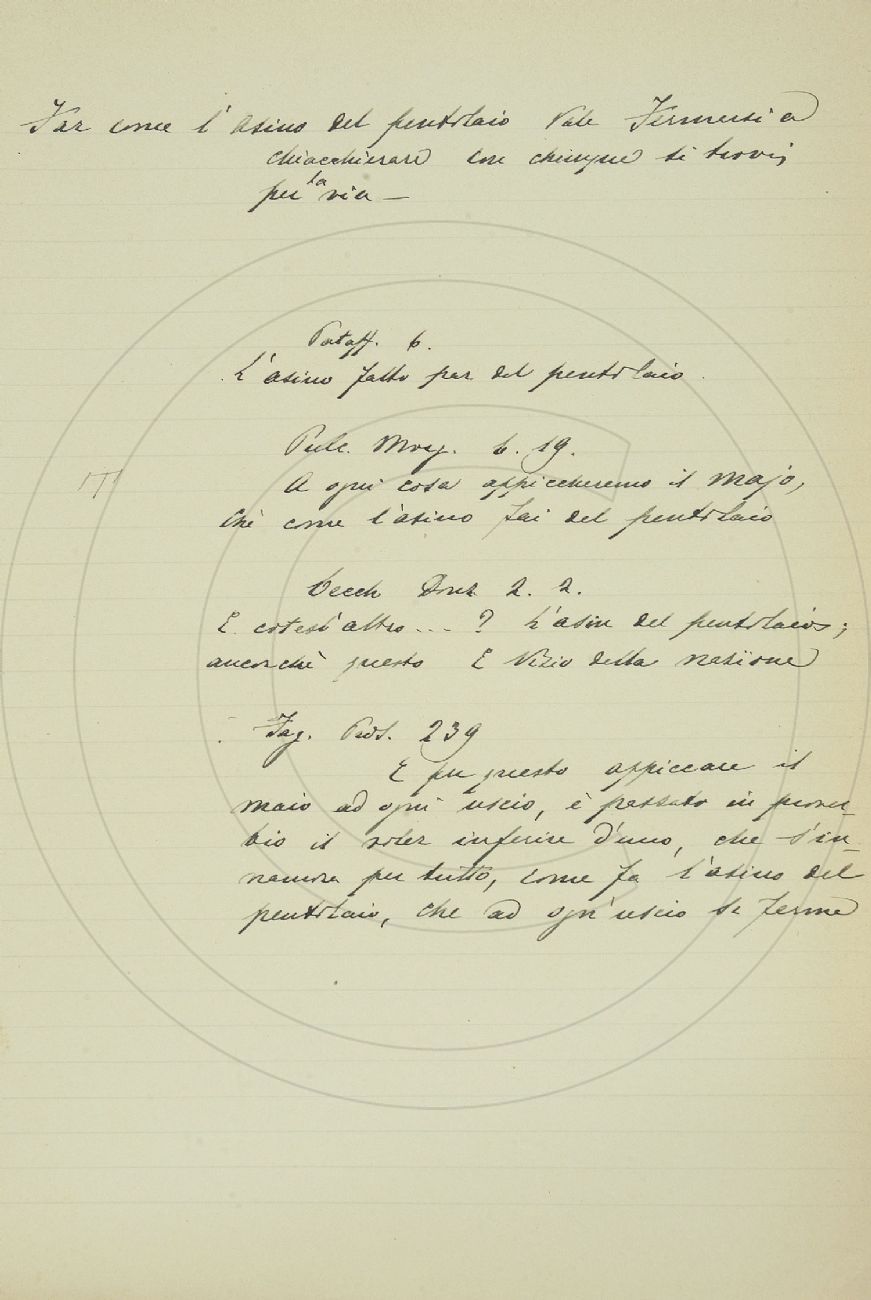 Far come l'asino del pentolaio Vale Fermarsi a
chiacchierare con chiunque si trovi,
per la via —
Pataff. 6.
L'asino fatto par del pentolaio.
Pulc. Morg. 6. 19.
A ogni cosa appiccheremo il majo,
Chè come l'asino fai del pentolaio
Cecch Donz. 2. 2.
E cotest'altro ... ? L'asin del pentolaio;
ancorchè questo È Vizio della nazione
Fag. Pros. 239
E per questo appiccare il
maio ad ogni uscio, è passato in prover-
bio il voler inferire d'uno, che s'in-
namora per tutto, come fa l'asino del
pentolaio, che ad ogn'uscio si ferma